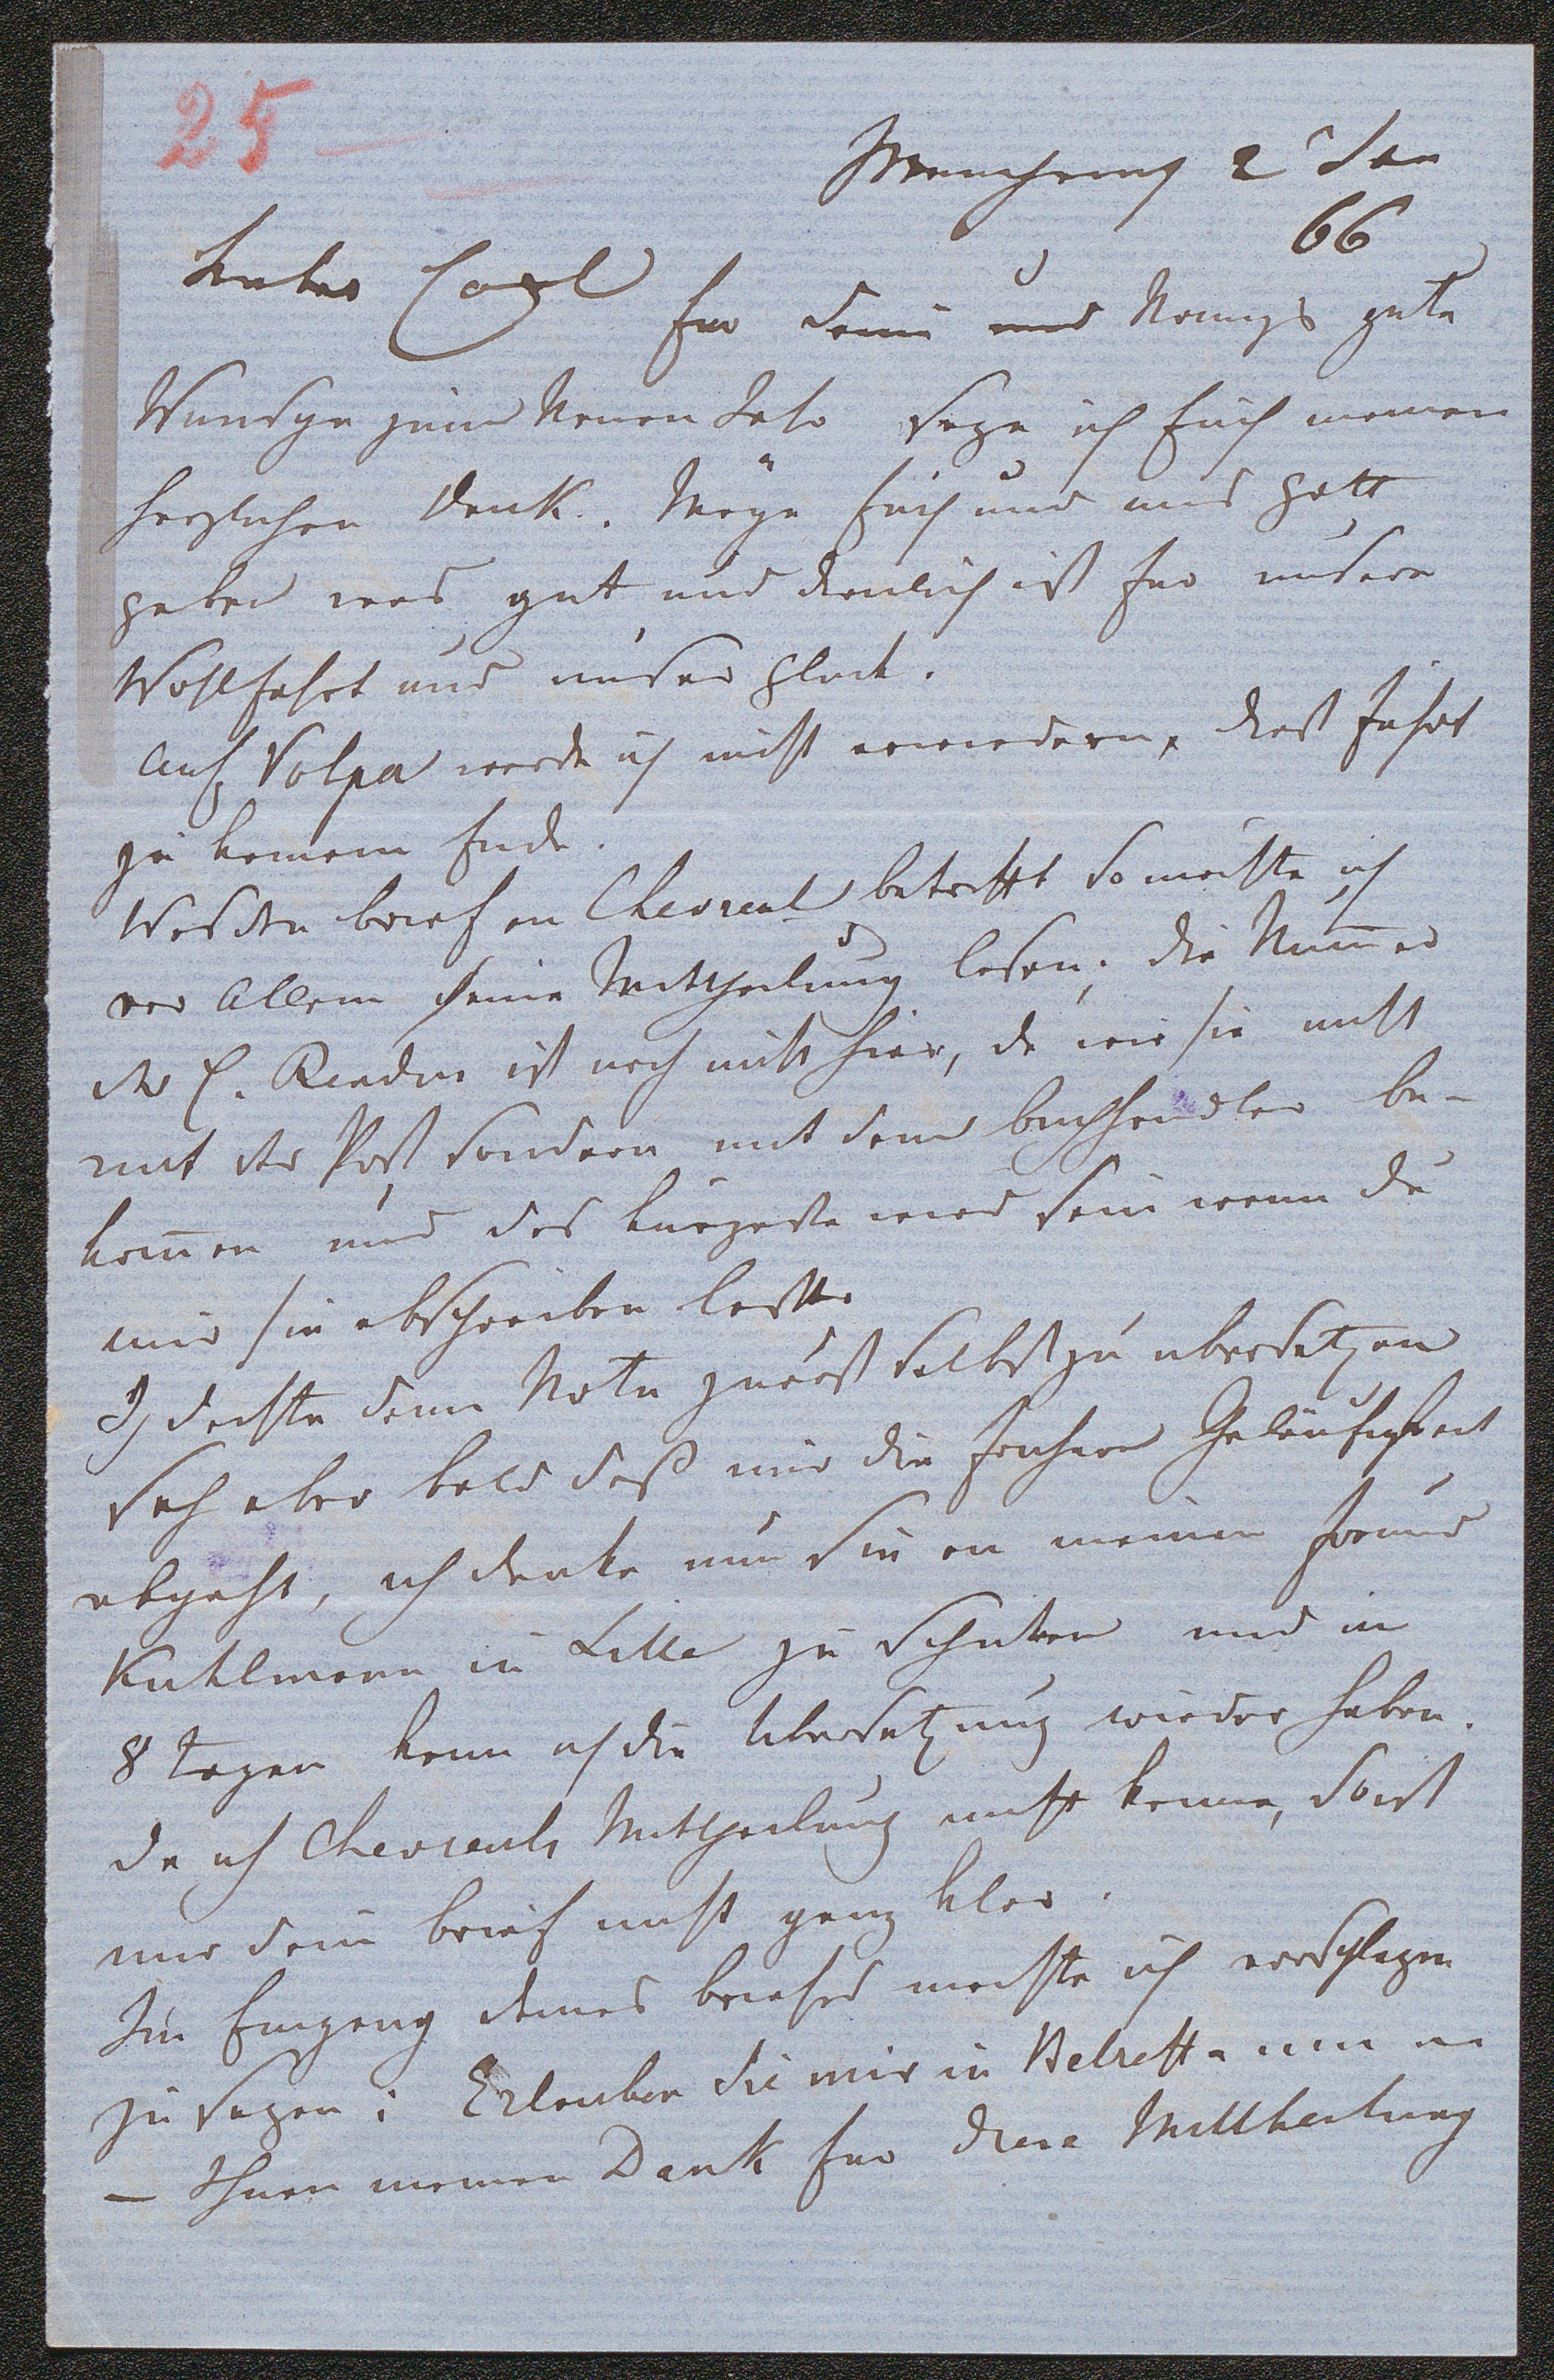 25
München 2 Jan
66
Lieber Carl
für Deine und Nannys gute
Wünsche zum Neuen Jahr sage ich Euch meinen
herzlichen Dank. Möge Euch und uns Gott
geben was gut und dienlich ist für unsere
Wohlfahrt und unser Glück.
Auf Volpa werde ich nicht erwiedern, dieß führt
zu keinem Ende.
Was den Brief an Chevreul betrifft so möchte ich
vor Allem seine Mittheilung lesen; die Num̄er
der C. Rendus ist noch nicht hier, da wir sie nicht
mit der Post sondern mit dem Buchhändler be-
kom̄en und das kürzeste wird sein wenn du
mir sie abschreiben läßt.
Ich dachte Deine Note zuerst selbst zu übersetzen
sah aber bald daß mir die frühere Geläufigkeit
abgeht, ich denke nun sie an meinen Freund
Kuhlmann in Lille zu schicken und in
8 Tagen kann ich die Übersetzung wieder haben.
Da ich Chevreuls Mittheilung nicht kenne, so ist
mir dein Brief nicht ganz klar.
Im Eingang deines Briefes möchte ich vorschlagen
zu sagen: Erlauben Sie mir in Betreff
— Ihnen meinen Dank für diese Mittheilung